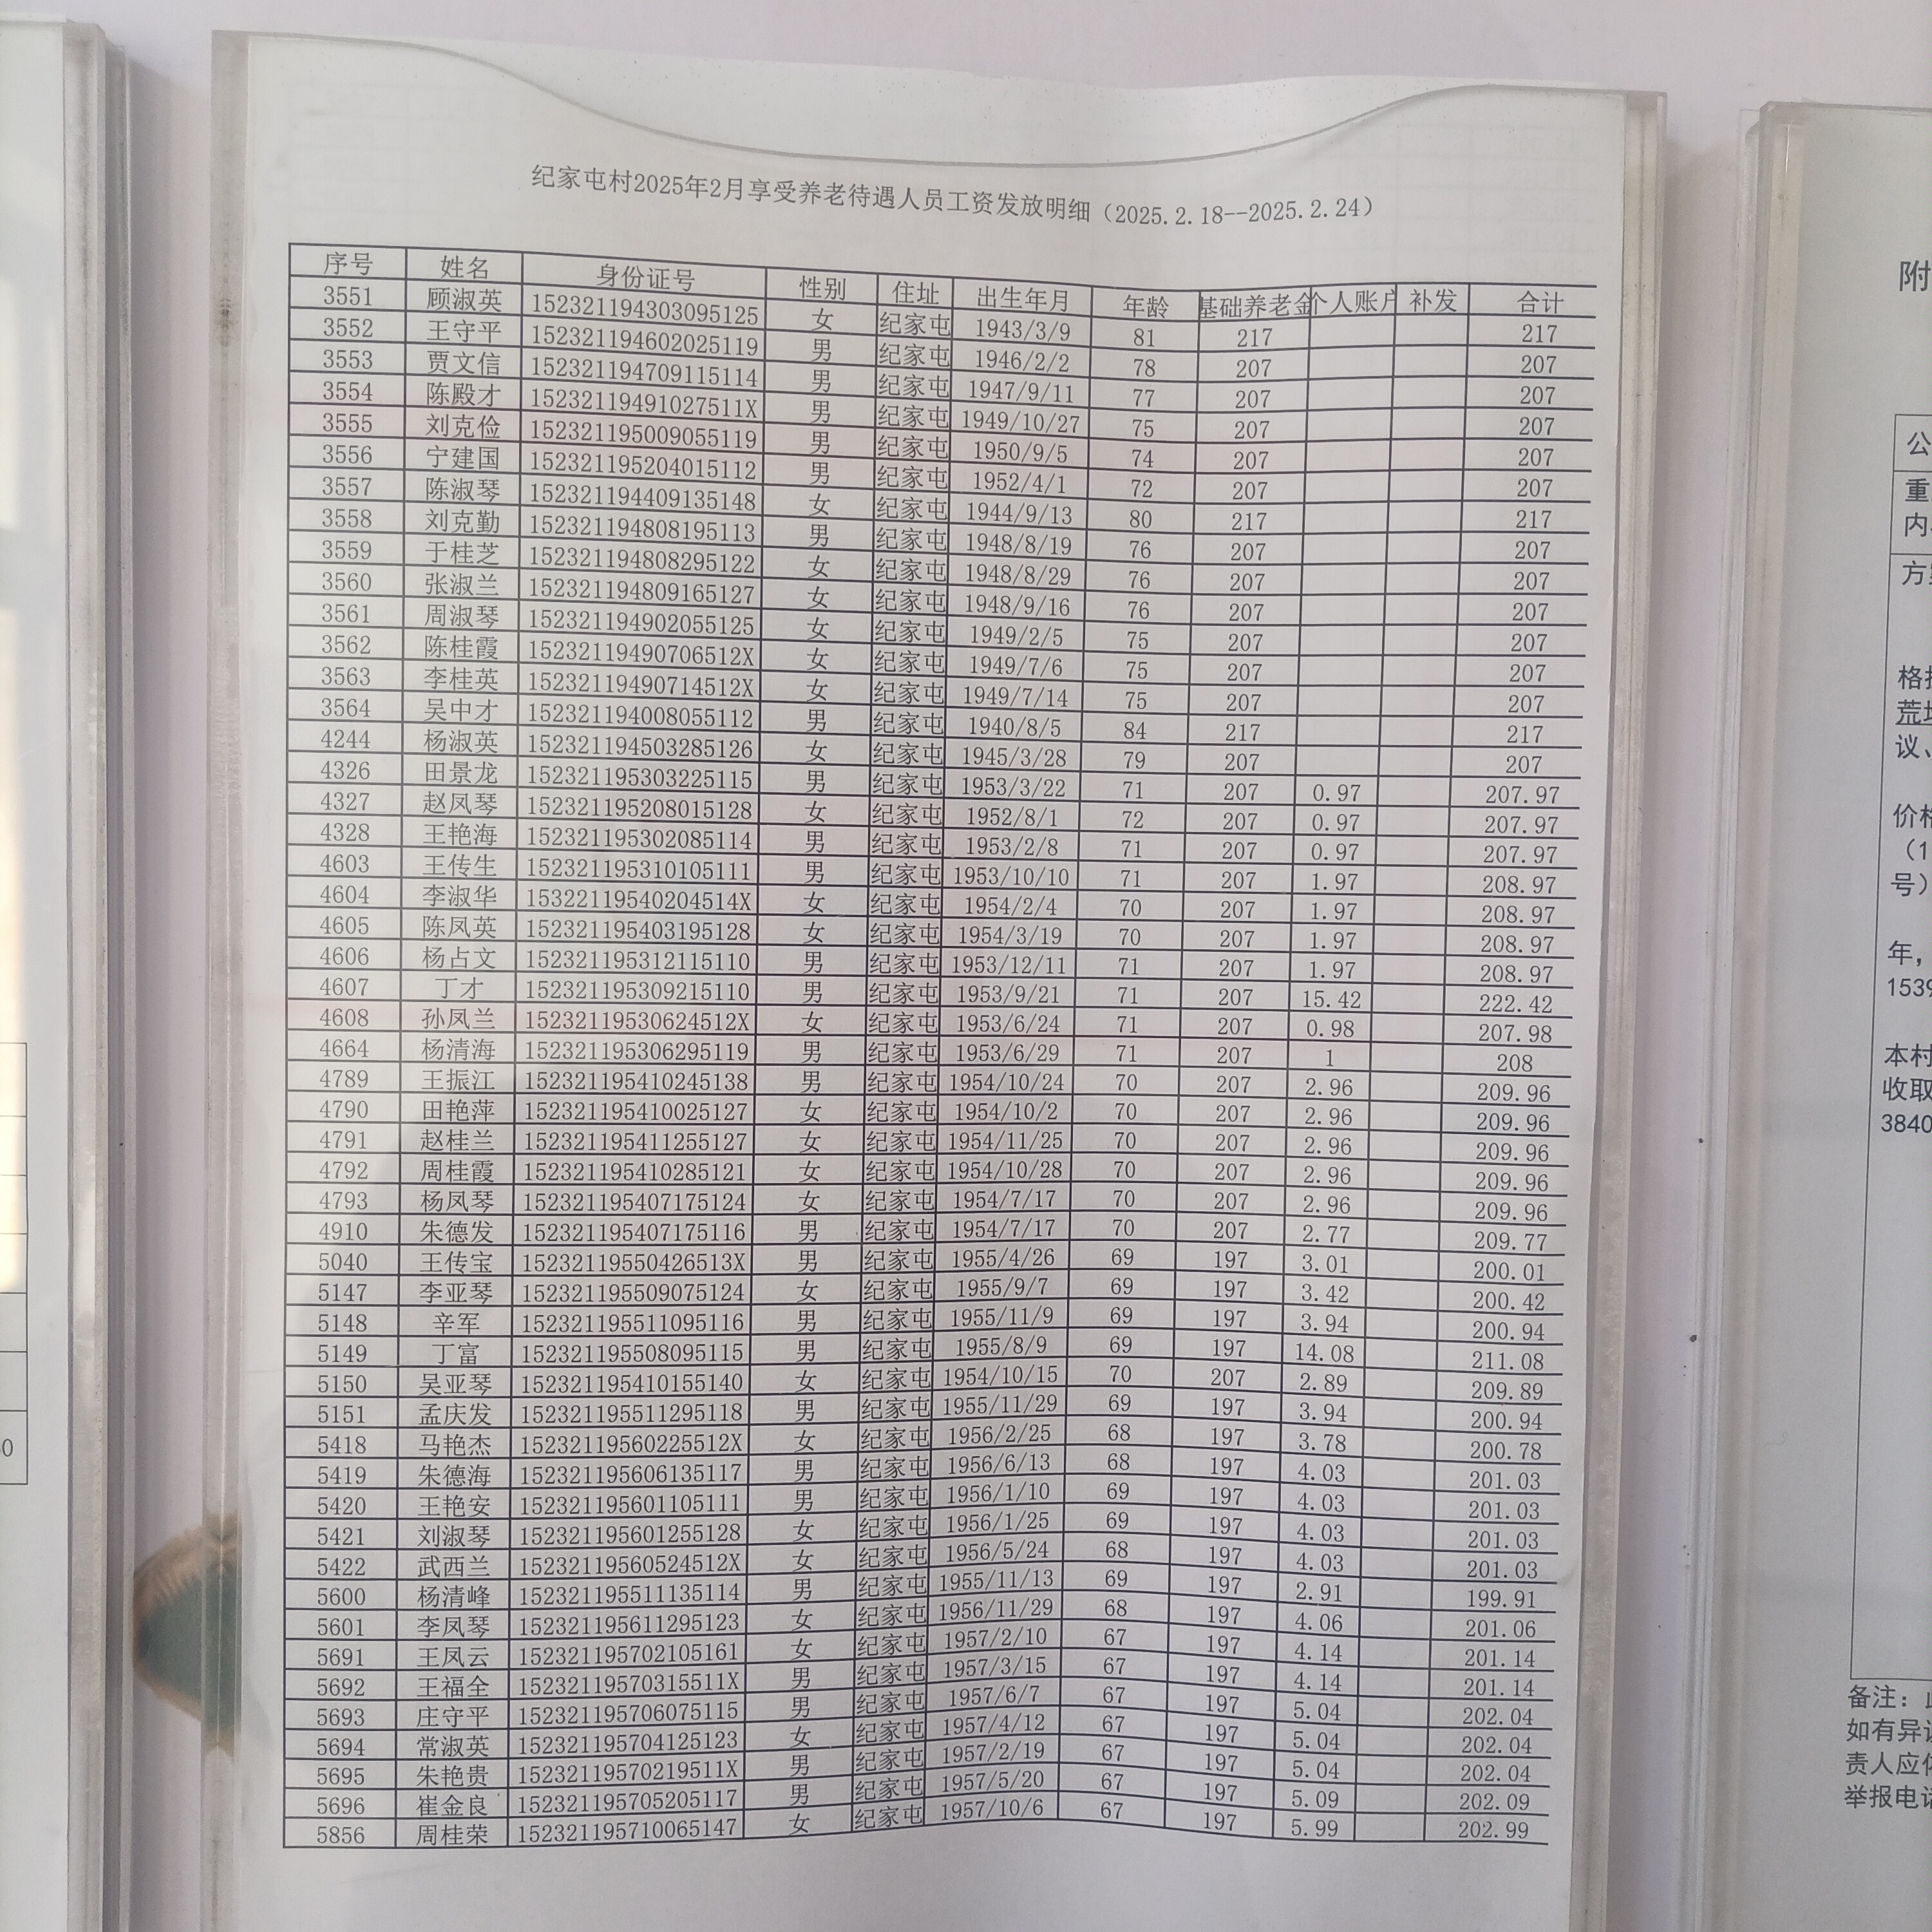 纪家屯村2025年2月享受养老待遇人员工资发放明细（2025.2.18--2025.2.24）
序号 姓名 身份证号 性别 住址 出生年月 年龄 基础养老金 个人账户 补发 合计
3551 顾淑英 152321194303095125 女 纪家屯 1943/3/9 81 217 217
3552 王守平 152321194602025119 男 纪家屯 1946/2/2 78 207 207
3553 贾文信 152321194709115114 男 纪家屯 1947/9/11 77 207 207
3554 陈殿才 15232119491027511X 男 纪家屯 1949/10/27 75 207 207
3555 刘克俭 152321195009055119 男 纪家屯 1950/9/5 74 207 207
3556 宁建国 152321195204015112 男 纪家屯 1952/4/1 72 207 207
3557 陈淑琴 152321194409135148 女 纪家屯 1944/9/13 80 217 217
3558 刘克勤 152321194808195113 男 纪家屯 1948/8/19 76 207 207
3559 于桂芝 152321194808295122 女 纪家屯 1948/8/29 76 207 207
3560 张淑兰 152321194809165127 女 纪家屯 1948/9/16 76 207 207
3561 周淑琴 152321194902055125 女 纪家屯 1949/2/5 75 207 207
3562 陈桂霞 15232119490706512X 女 纪家屯 1949/7/6 75 207 207
3563 李桂英 15232119490714512X 女 纪家屯 1949/7/14 75 207 207
3564 吴中才 152321194008055112 男 纪家屯 1940/8/5 84 217 217
4244 杨淑英 152321194503285126 女 纪家屯 1945/3/28 79 207 207
4326 田景龙 152321195303225115 男 纪家屯 1953/3/22 71 207 0.97 207.97
4327 赵凤琴 152321195208015128 女 纪家屯 1952/8/1 72 207 0.97 207.97
4328 王艳海 152321195302085114 男 纪家屯 1953/2/8 71 207 0.97 207.97
4603 王传生 152321195310105111 男 纪家屯 1953/10/10 71 207 1.97 208.97
4604 李淑华 15322119540204514X 女 纪家屯 1954/2/4 70 207 1.97 208.97
4605 陈凤英 152321195403195128 女 纪家屯 1954/3/19 70 207 1.97 208.97
4606 杨占文 152321195312115110 男 纪家屯 1953/12/11 71 207 1.97 208.97
4607 丁才 152321195309215110 男 纪家屯 1953/9/21 71 207 15.42 222.42
4608 孙凤兰 15232119530624512X 女 纪家屯 1953/6/24 71 207 0.98 207.98
4664 杨清海 152321195306295119 男 纪家屯 1953/6/29 71 207 1 208
4789 王振江 152321195410245138 男 纪家屯 1954/10/24 70 207 2.96 209.96
4790 田艳萍 152321195410025127 女 纪家屯 1954/10/2 70 207 2.96 209.96
4791 赵桂兰 152321195411255127 女 纪家屯 1954/11/25 70 207 2.96 209.96
4792 周桂霞 152321195410285121 女 纪家屯 1954/10/28 70 207 2.96 209.96
4793 杨凤琴 152321195407175124 女 纪家屯 1954/7/17 70 207 2.96 209.96
4910 朱德发 152321195407175116 男 纪家屯 1954/7/17 70 207 2.77 209.77
5040 王传宝 15232119550426513X 男 纪家屯 1955/4/26 69 197 3.01 200.01
5147 李亚琴 152321195509075124 女 纪家屯 1955/9/7 69 197 3.42 200.42
5148 辛军 152321195511095116 男 纪家屯 1955/11/9 69 197 3.94 200.94
5149 丁富 152321195508095115 男 纪家屯 1955/8/9 69 197 14.08 211.08
5150 吴亚琴 152321195410155140 女 纪家屯 1954/10/15 70 207 2.89 209.89
5151 孟庆发 152321195511295118 男 纪家屯 1955/11/29 69 197 3.94 200.94
5418 马艳杰 15232119560225512X 女 纪家屯 1956/2/25 68 197 3.78 200.78
5419 朱德海 152321195606135117 男 纪家屯 1956/6/13 68 197 4.03 201.03
5420 王艳安 152321195601105111 男 纪家屯 1956/1/10 69 197 4.03 201.03
5421 刘淑琴 152321195601255128 女 纪家屯 1956/1/25 69 197 4.03 201.03
5422 武西兰 15232119560524512X 女 纪家屯 1956/5/24 68 197 4.03 201.03
5600 杨清峰 152321195511135114 男 纪家屯 1955/11/13 69 197 2.91 199.91
5601 李凤琴 152321195611295123 女 纪家屯 1956/11/29 68 197 4.06 201.06
5691 王凤云 152321195702105161 女 纪家屯 1957/2/10 67 197 4.14 201.14
5692 王福全 15232119570315511X 男 纪家屯 1957/3/15 67 197 4.14 201.14
5693 庄守平 152321195706075115 男 纪家屯 1957/6/7 67 197 5.04 202.04
5694 常淑英 152321195704125123 女 纪家屯 1957/4/12 67 197 5.04 202.04
5695 朱艳贵 15232119570219511X 男 纪家屯 1957/2/19 67 197 5.04 202.04
5696 崔金良 152321195705205117 男 纪家屯 1957/5/20 67 197 5.09 202.09
5856 周桂荣 152321195710065147 女 纪家屯 1957/10/6 67 197 5.99 202.99
附
公
重
内
方
格
荒
议、
价格
（1
号）
年，
1539
本村
收取
3840
备注：
如有异
责人应
举报电